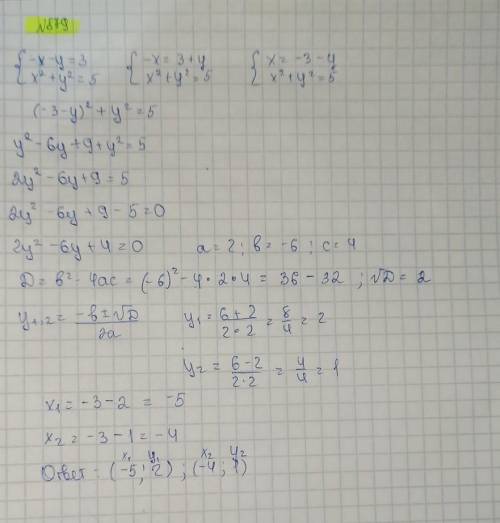 №879
{-x-y=3 {-x=3+y {x=-3-y
{x²+y²=5 {x²+y²=5 {x²+y²=5
(-3-y)²+y²=5
y²-6y+9+y²=5
2y²-6y+9=5
2y²-6y+9-5=0
2y²-6y+4=0 a=2; b=-6; c=4
D=b²-4ac=(-6)²-4•2•4=36-32; √D=2
y₁,₂=(-b±√D)/2a y₁=(6+2)/(2•2)=8/4=2
y₂=(6-2)/(2•2)=4/4=1
x₁=-3-2=-5
x₂=-3-1=-4
x₁ y₁ x₂ y₂
Ответ: (-5; 2); (-4; 1)